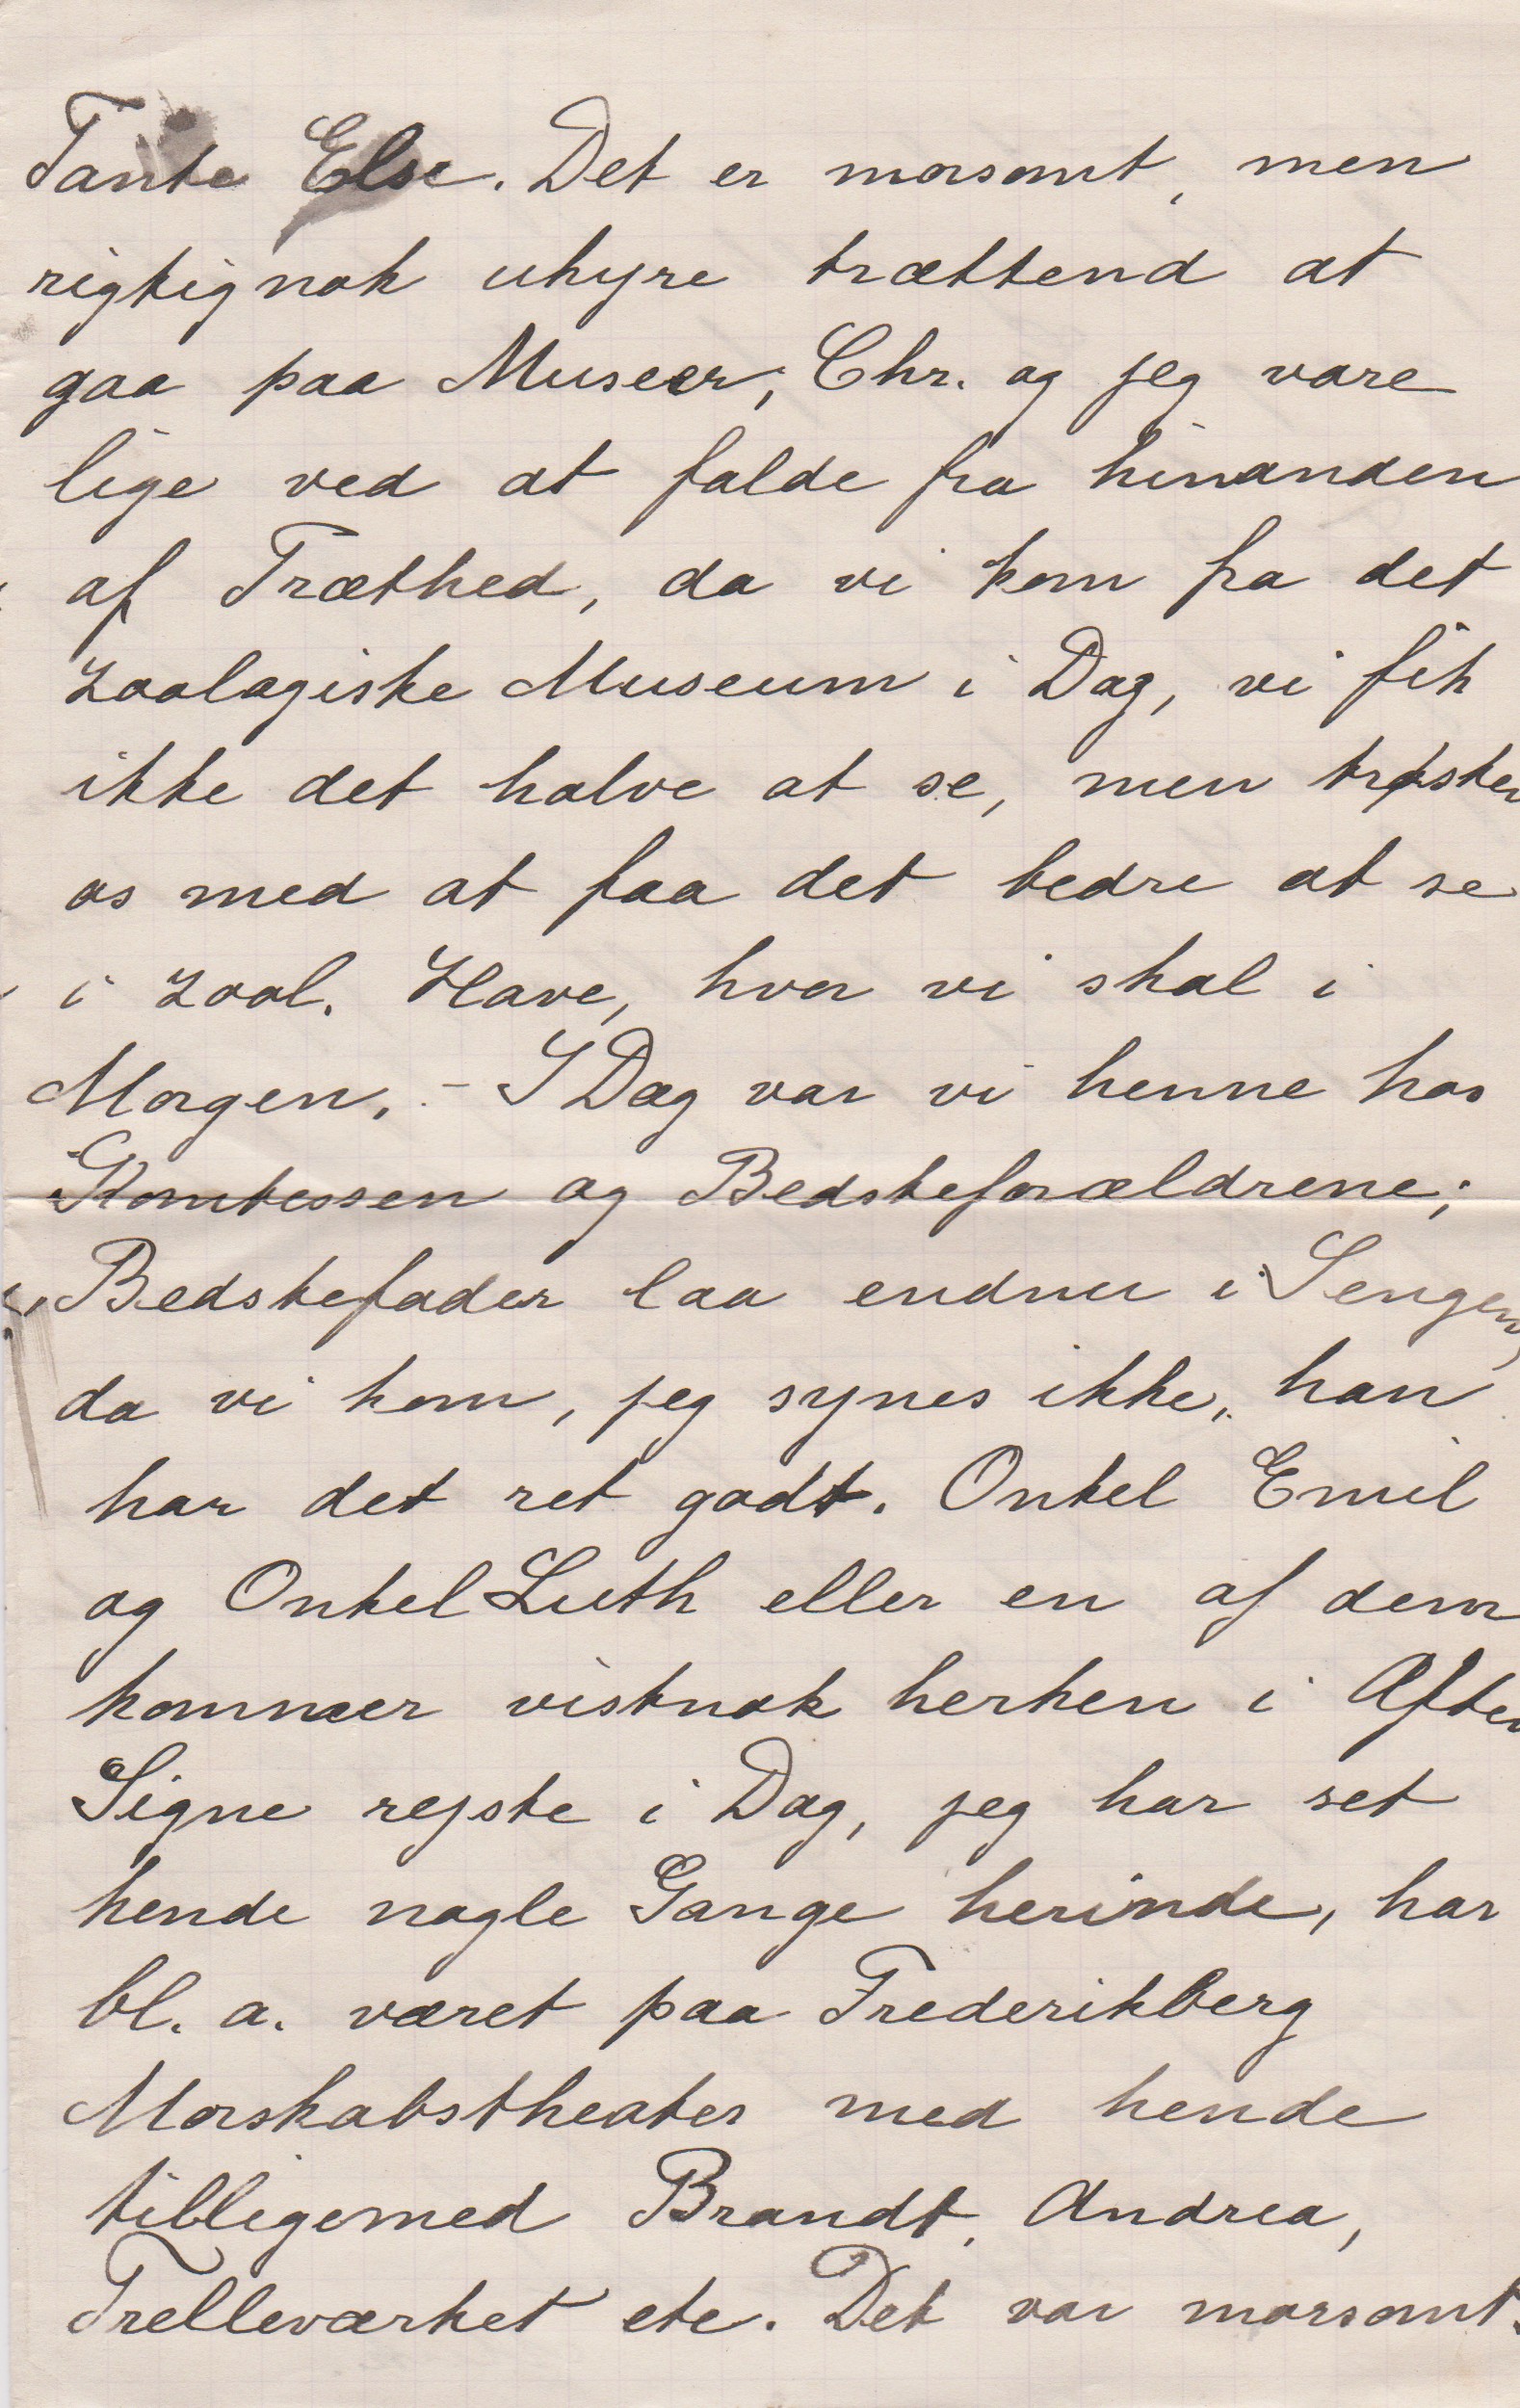 Tante Else. Det er morsomt, men
rigtignok uhyre trættend at
gaa paa Museer; Chr. og jeg vare
lige ved at falde fra hinanden
af Træthed, da vi kom fra det
zoologiske Museum i Dag, vi fik
ikke det halve at se, men trøster
os med at faa det bedre at se
i zool. Have, hvor vi skal i
Morgen. - I Dag var vi henne hos
Komtessen og Bedsteforældrene;
Bedstefader laa endnu i Sengen,
da vi kom, jeg synes ikke, han
har det ret godt. Onkel Emil
og Onkel Luth eller en af dem
kommer vistnok herhen i Aften
Signe rejste i Dag, jeg har set
hende nogle Gange herinde, har
bl. a. været paa Frederikberg
Morskabstheater med hende
tilligemed Brandt, Andrea,
Trelleværket etc. Det var morsomt.